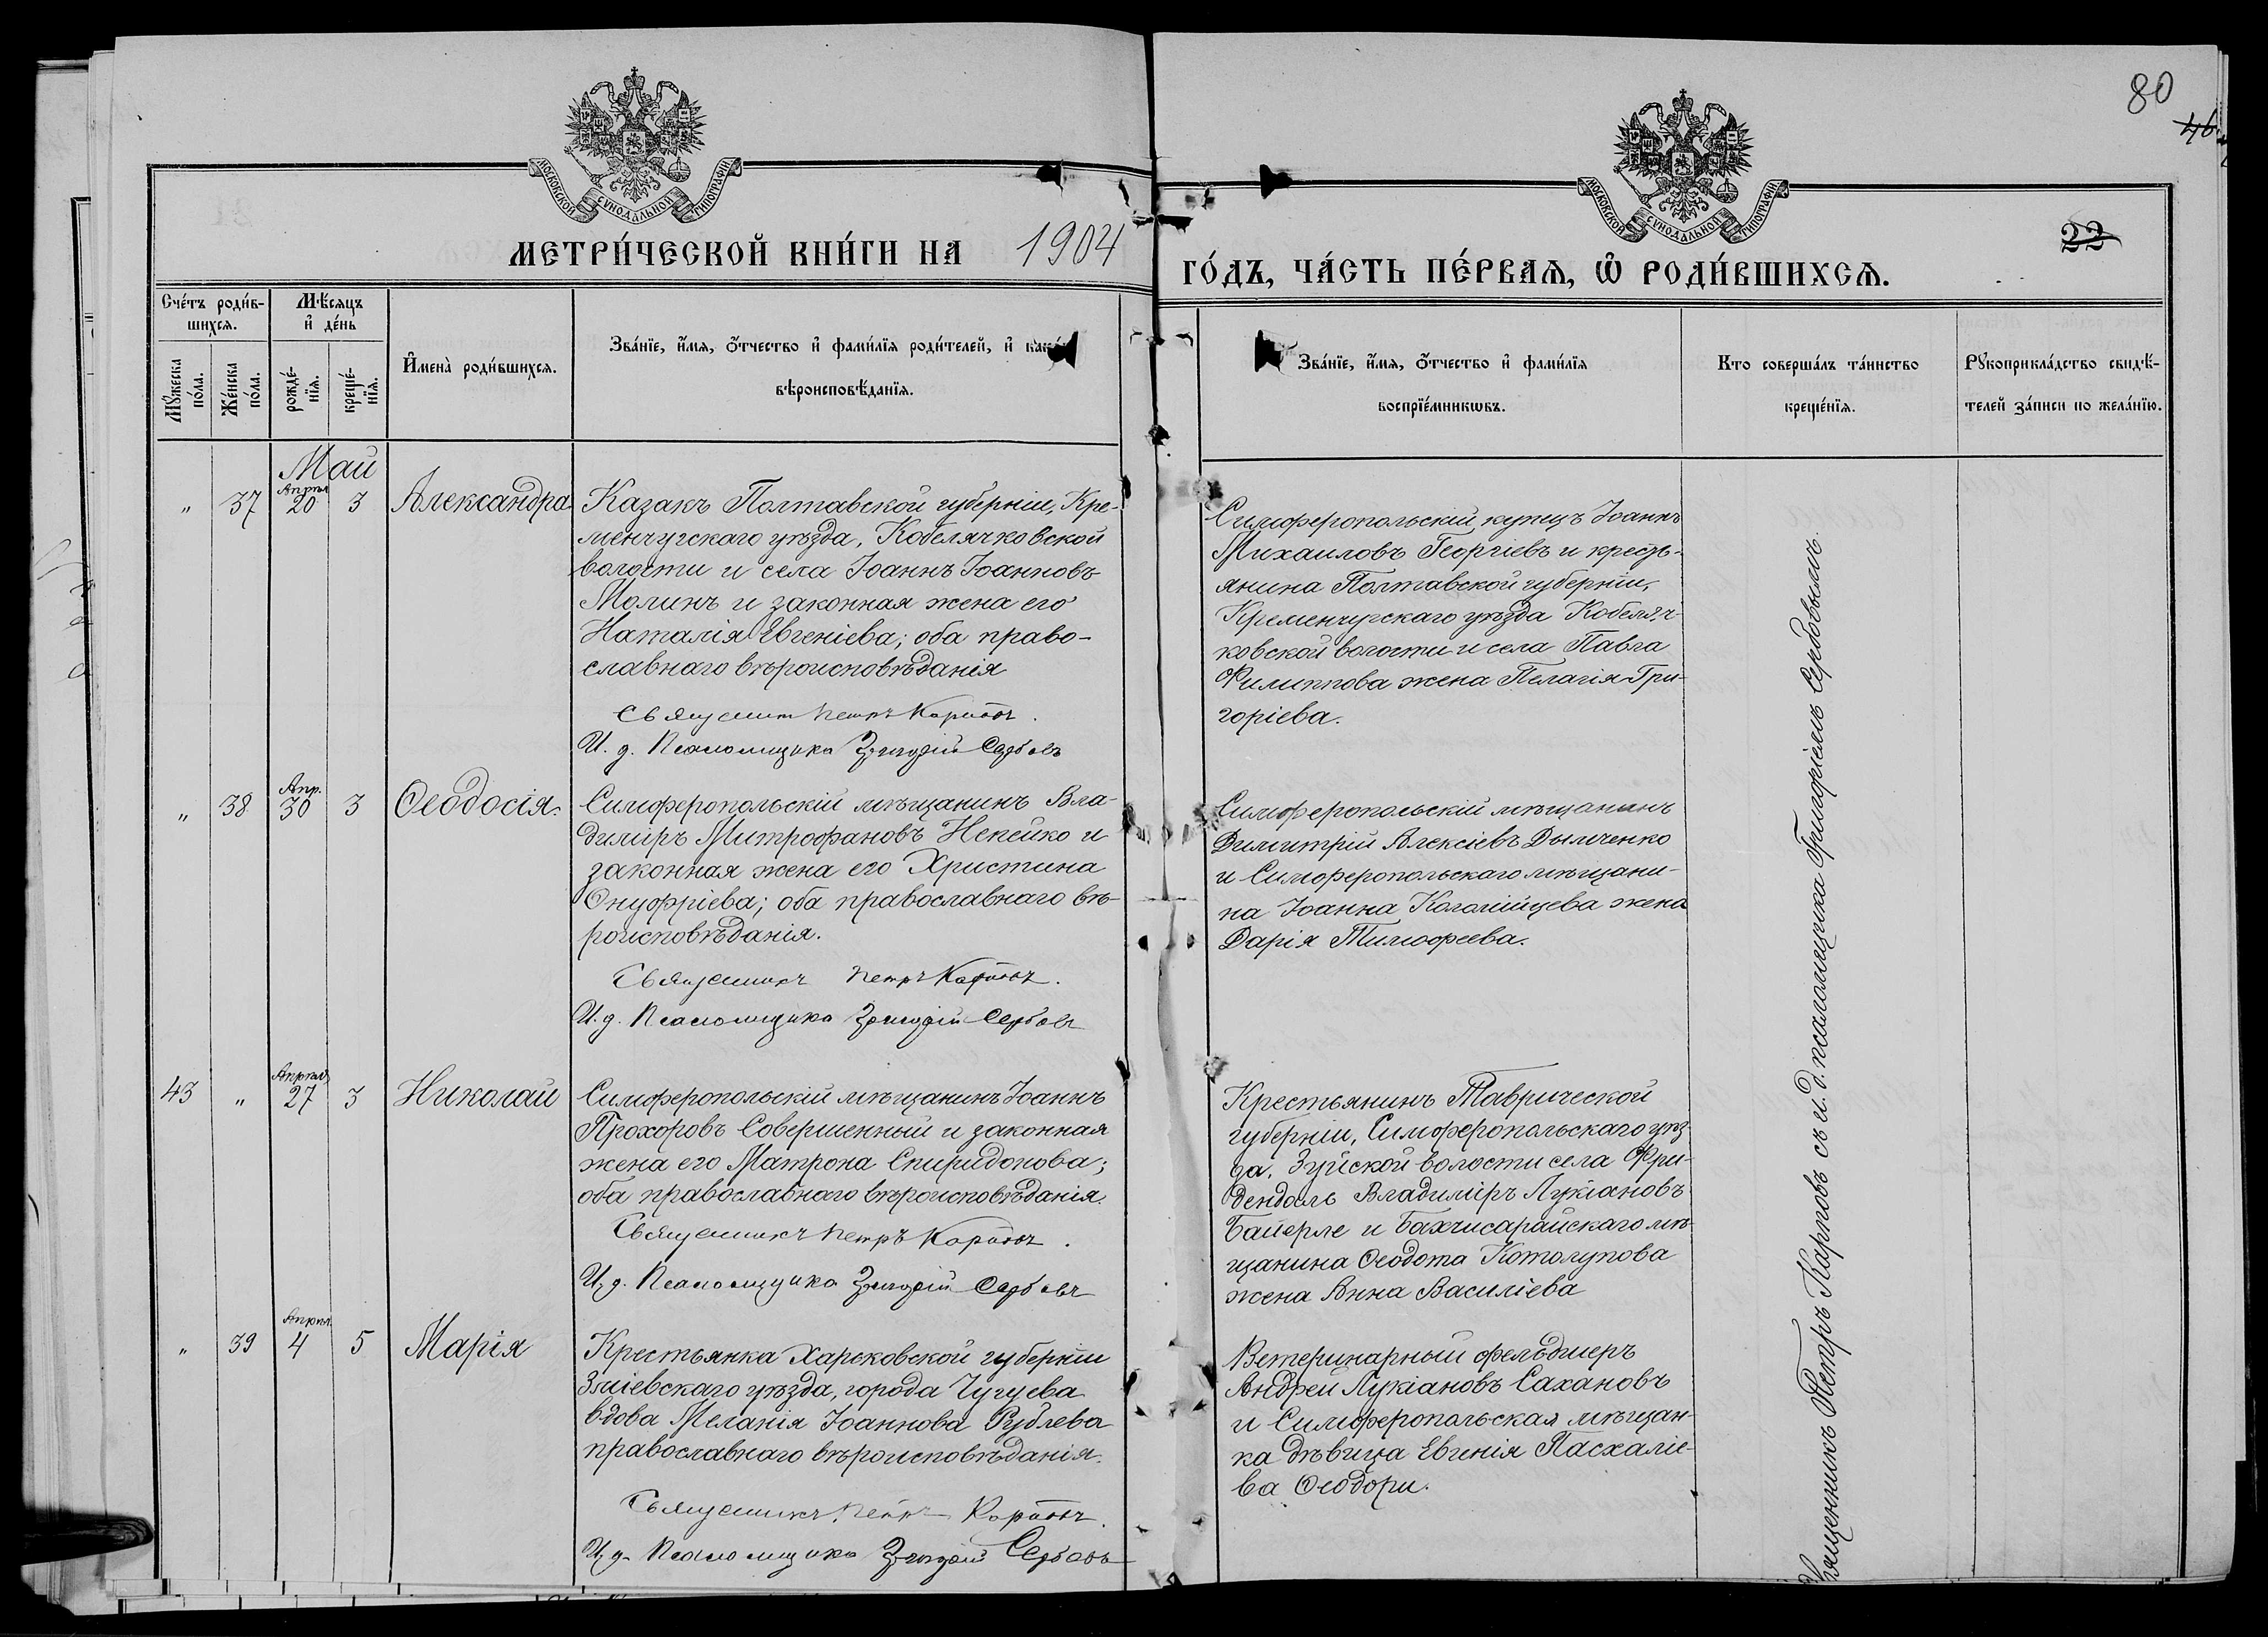 80
46
МОСКОВСКОЙ СѴНОДАЛЬНОЙ ТИПОГРАФІИ
МОСКОВСКОЙ СѴНОДАЛЬНОЙ ТИПОГРАФІИ
22
МЕТРИ́ЧЕСКОЙ КНИ́ГИ НА 1904
ГО́ДЪ, ЧА́СТЬ ПЕ́РВАѦ, Ѡ҆ РОДИ́ВШИХСѦ.
Сче́тъ роди́в-
шихсѧ.
Мꙋ́жеска по́ла.
Же́нска по́ла.
Мѣ́сѧцъ
и҆ де́нь
рожде́-
нїѧ.
креще́-
нїѧ.
И҆мена̀ роди́вшихсѧ.
Зва́нїе, и҆́мѧ, ѻ҆́тчество и҆ фами́лїѧ роди́телей, и҆ како́й
вѣроисповѣ́данїѧ.
Зва́нїе, и҆́мѧ, ѻ҆́тчество и҆ фами́лїѧ
воспрїе́мникѡвъ.
Кто соверша́лъ та́инство
креще́нїѧ.
Рꙋкоприкла́дство свидѣ́-
телей за́писи по жела́нїю.
Май
" 37 Апрѣл 20 3 Александра
Казакъ Полтавской губерніи, Кре-
менчугскаго уѣзда, Кобелячковской
волости и села Іоаннъ Іоанновъ
Молинъ и законная жена его
Наталія Евгеніева; оба право-
славнаго вѣроисповѣданія
Священникъ Петръ Карповъ.
И. д. Псаломщика Григорій Сербовъ
Симферопольскій купецъ Іоаннъ
Михаиловъ Георгіевъ и кресть-
янина Полтавской губерніи,
Кременчугскаго уѣзда Кобеляч-
ковской волости и села Павла
Филиппова жена Пелагія Гри-
горіева.
" 38 Апр. 30 3 Ѳеодосія.
Симферопольскій мѣщанинъ Вла-
диміръ Митрофановъ Некейко и
законная жена его Христина
Онуфріева; оба православнаго вѣ-
роисповѣданія.
Священникъ Петръ Карповъ.
И. д. Псаломщика Григорій Сербовъ
Симферопольскій мѣщанинъ
Димитрій Алексіевъ Дымченко
и Симферопольскаго мѣщани-
на Іоанна Коломійцева жена
Дарія Тимофеева.
43 " Апрѣля 27 3 Николай
Симферопольскій мѣщанинъ Іоаннъ
Прохоровъ Совершенный и законная
жена его Матрона Спиридонова;
оба православнаго вѣроисповѣданія.
Священникъ Петръ Карповъ.
И. д. Псаломщика Григорій Сербовъ
Крестьянинъ Таврической
губерніи, Симферопольскаго уѣз
да, Зуйской волости села Фри-
денталь Владиміръ Лукіановъ
Байерле и Бахчисарайскаго мѣ-
щанина Ѳеодота Котолупова
жена Анна Василіева
" 39 Апрѣл. 4 5 Марія
Крестьянка Харьковской губерніи
Зміевскаго уѣзда, города Чугуева
вдова Меланія Іоаннова Рублева
православнаго вѣроисповѣданія.
Священникъ Петръ Карповъ.
И. д. Псаломщика Григорій Сербовъ
Ветеринарный фельдшеръ
Андрей Лукіановъ Сахановъ
и Симферопольская мѣщан-
ка дѣвица Евгенія Пасхаліе-
ва Ѳеодори.
Священникъ Петръ Карповъ съ и. д. псаломщика Григоріемъ Сербовымъ.